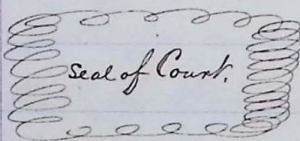 Seal of Court.